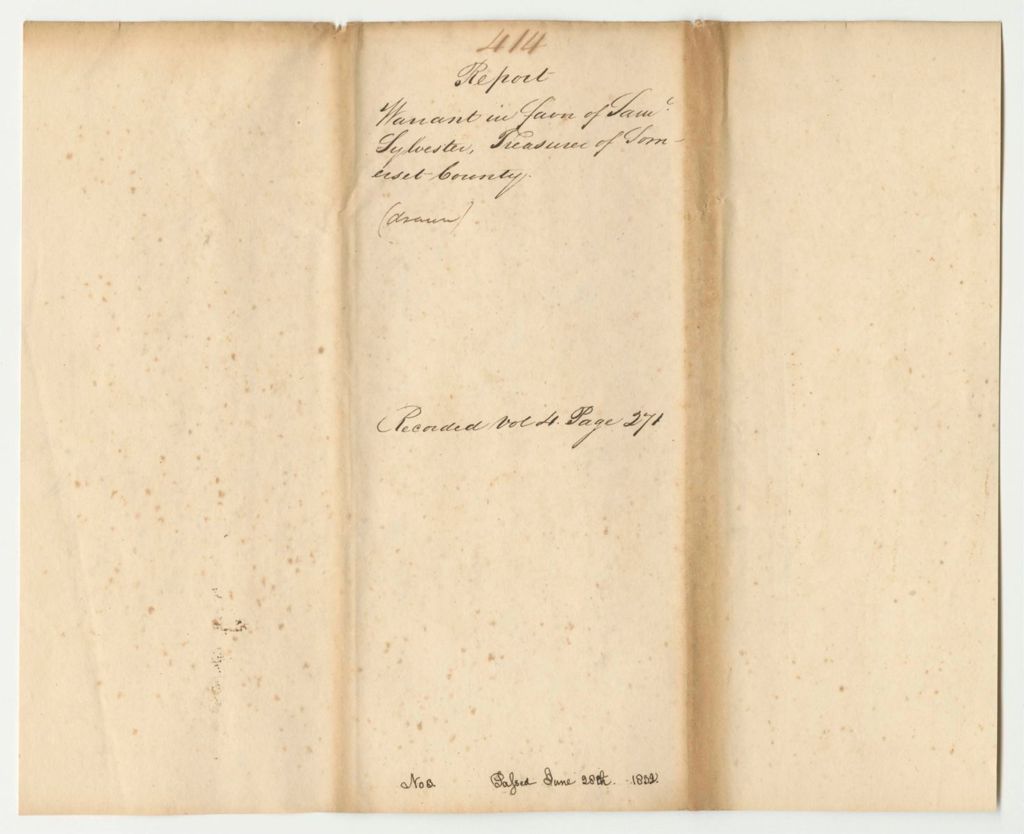 414
Report
Warrant in favor of Saml.
Sylvester, Treasurer of Som-
erset County.
(drawn)
Recorded Vol 4. Page 271
Passed June 28th. 1832